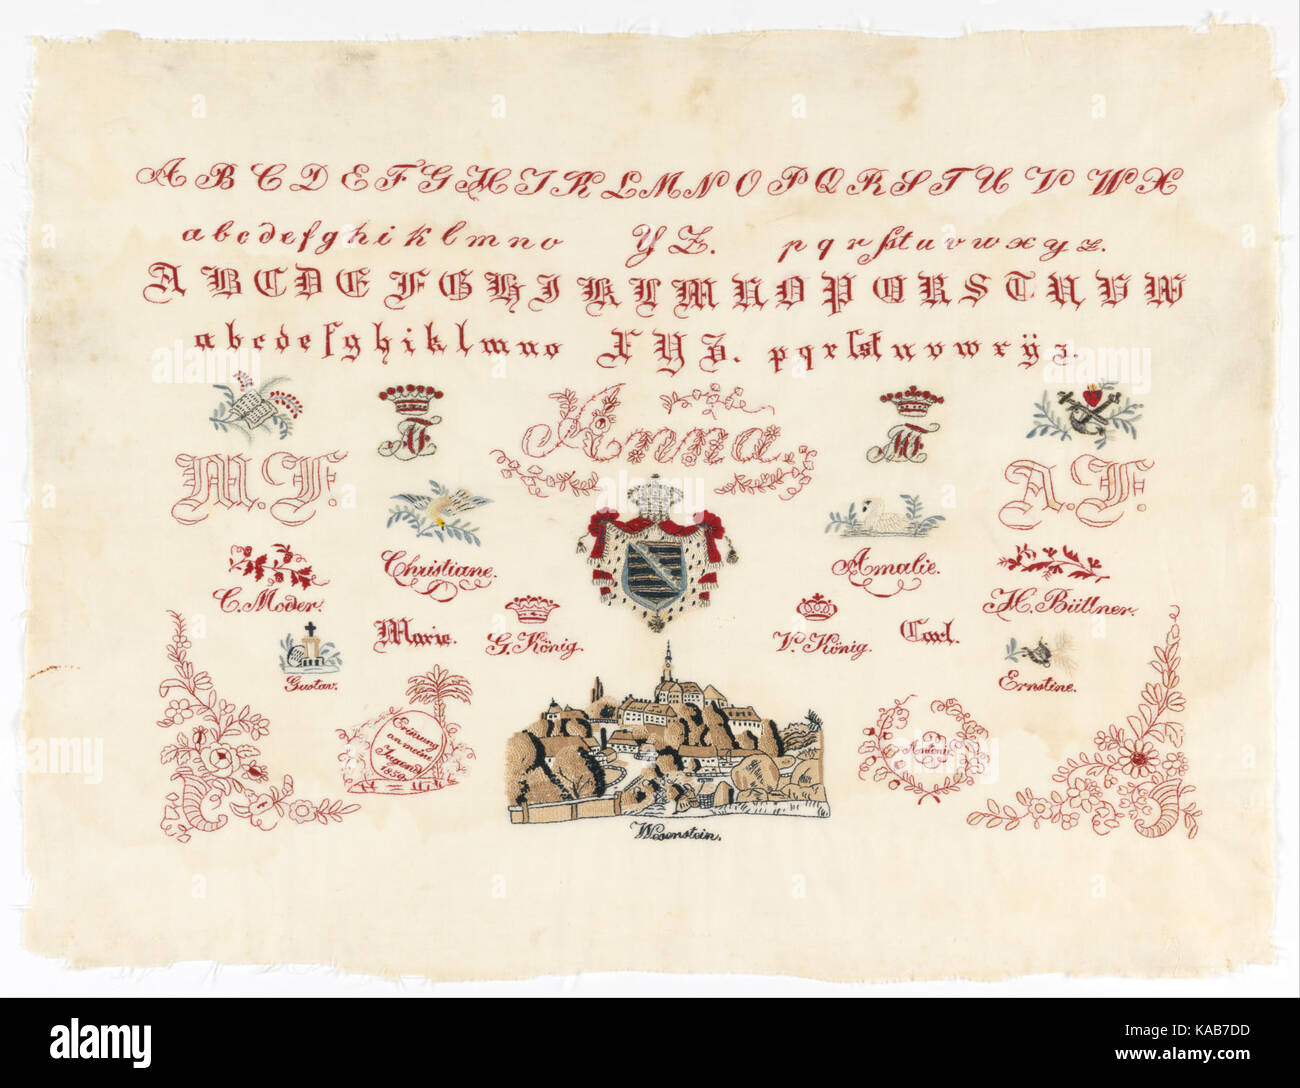 A B C D E F G H I K L M N O P Q R S T U V W X
a b c d e f g h i k l m n o Y Z. p q r ſ s t u v w x y z.
A B C D E F G H I K L M N O P Q R S T U V W
a b c d e f g h i k l m n o X Y Z. p q r ſ s t u v w x ÿ z.
Anna.
M. F. A. F.
Christiane. Amalie.
C. Moder. H. Büttner.
Marie. G. König. V. König. Carl.
Gustav. Ernstine.
Erinung
an meine
Jugend
1859.
Antonie
Wesenstein.
alamy stock photo
KAB7DD
www.alamy.com